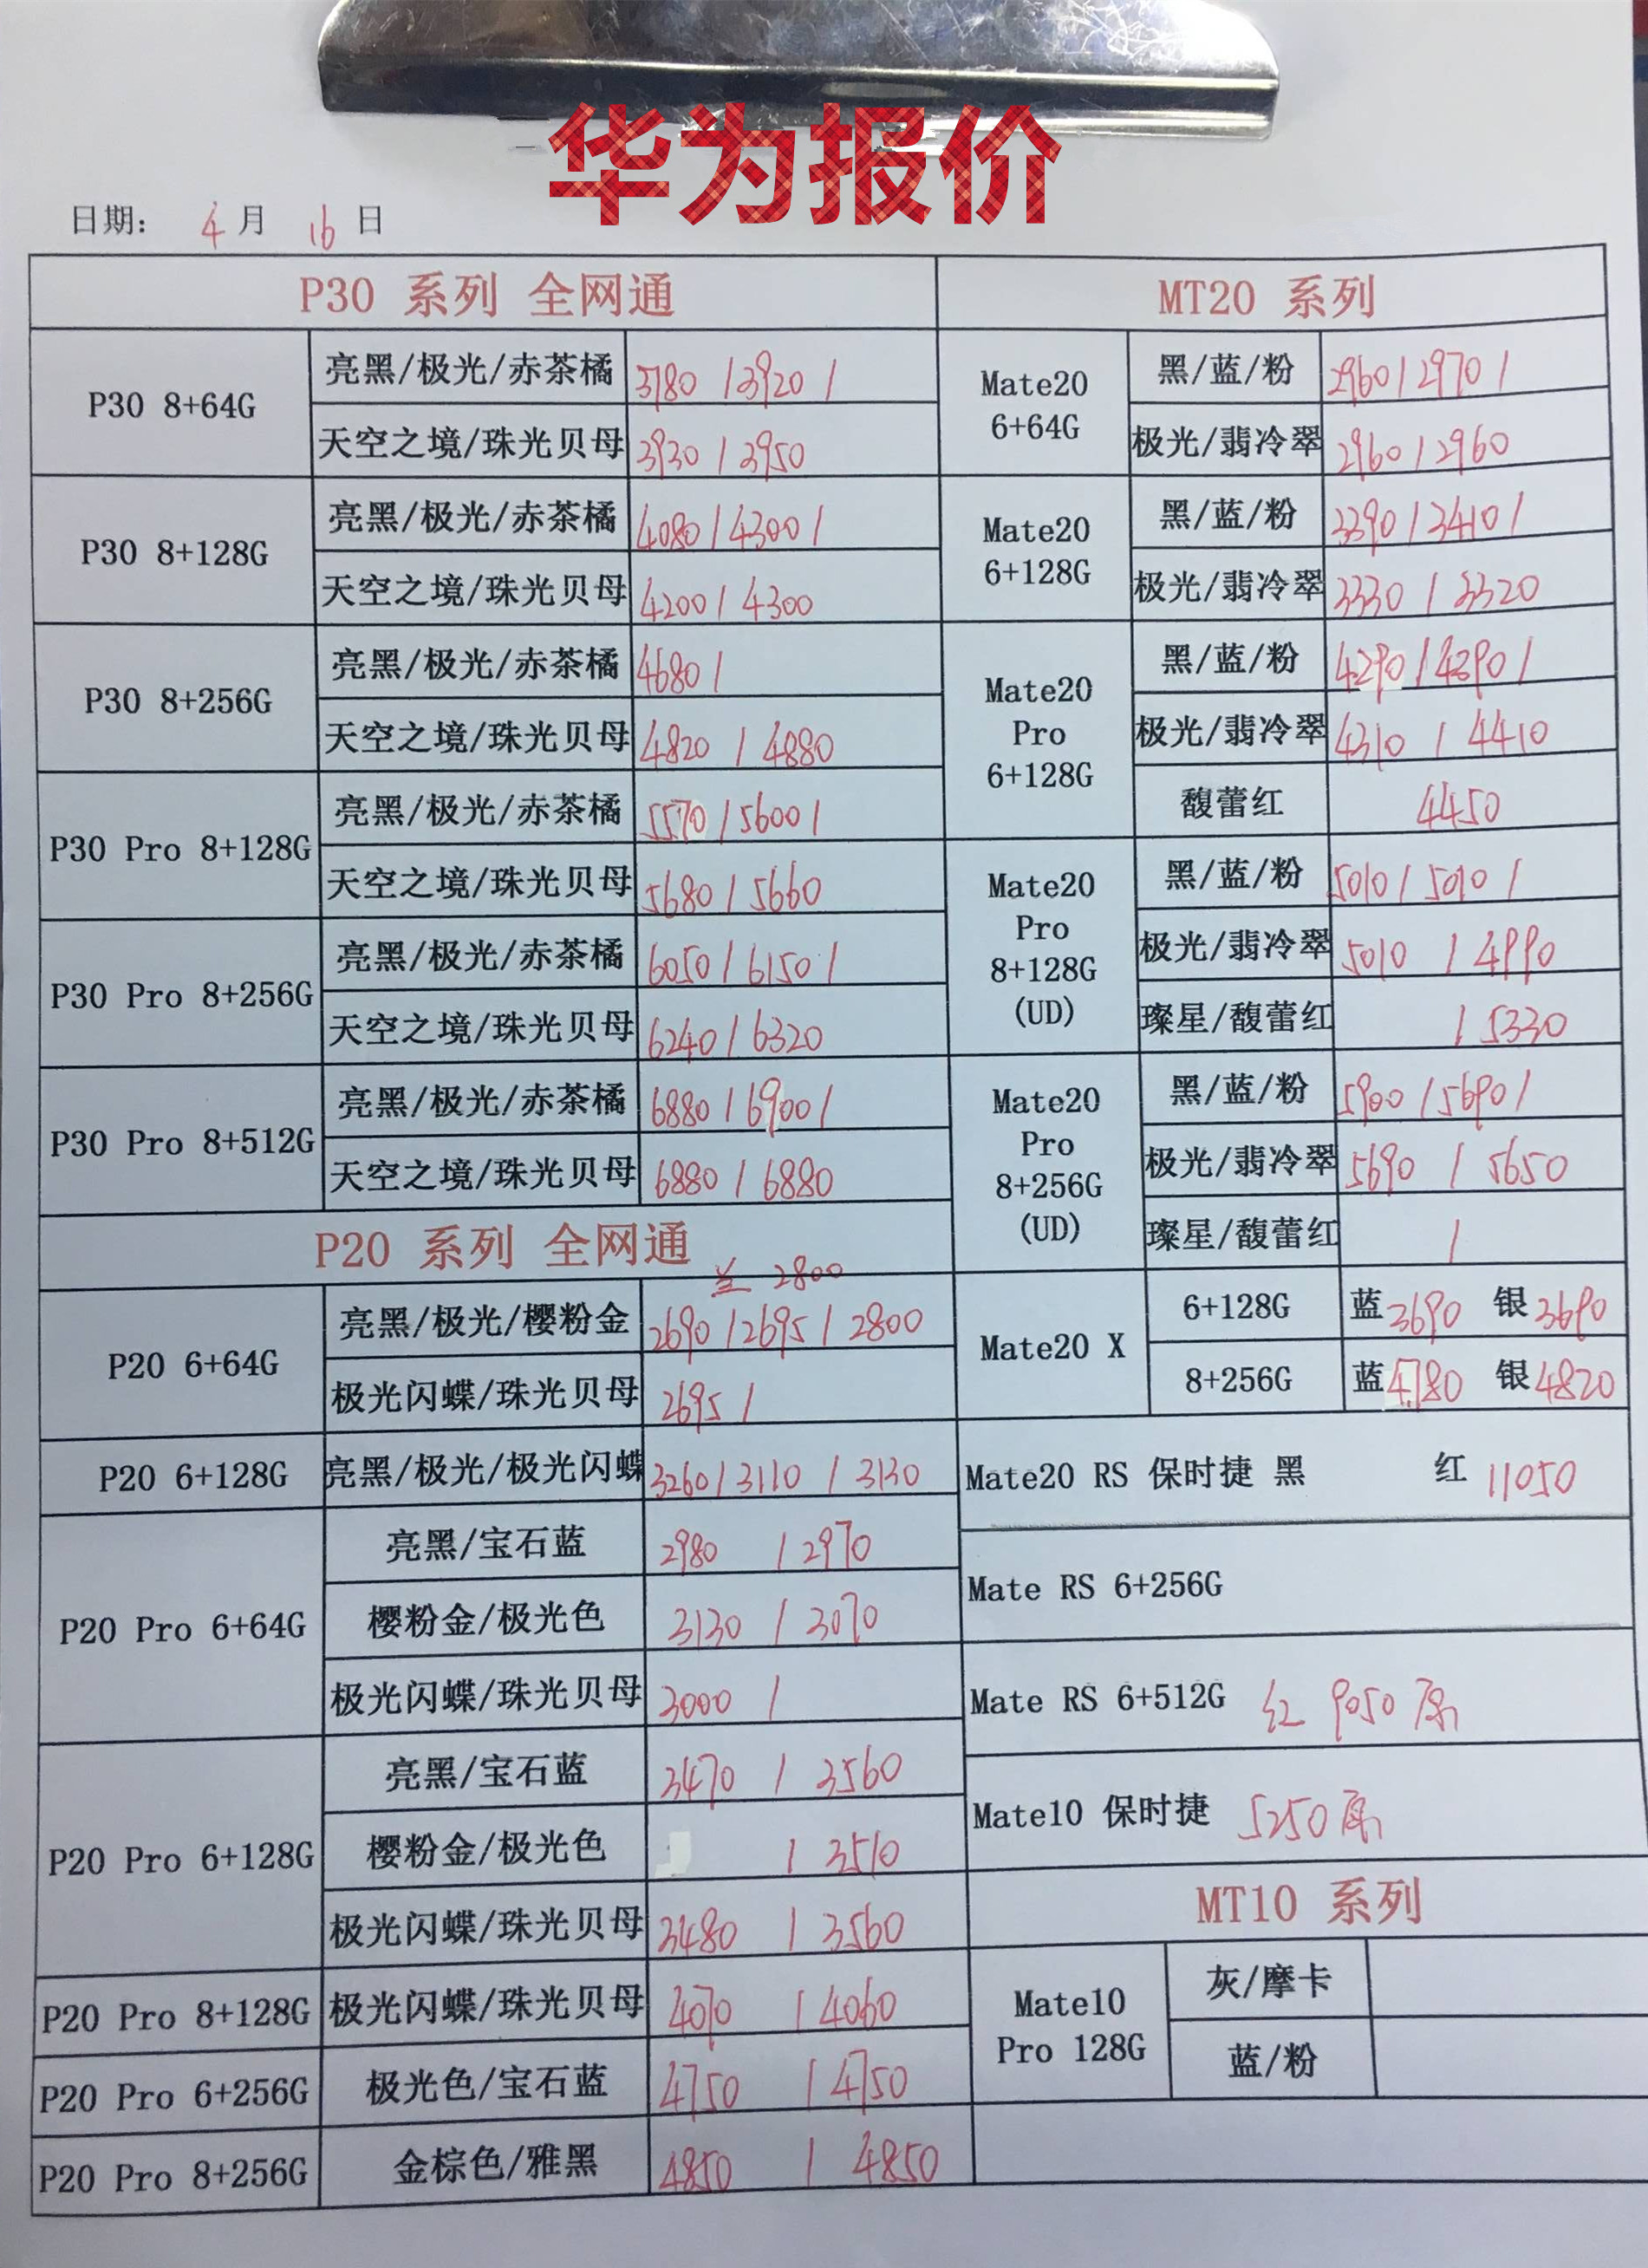 华为报价
日期： 4 月 16 日
P30 系列 全网通
P30 8+64G
亮黑/极光/赤茶橘 3780 / 3920 /
天空之境/珠光贝母 3930 / 3950
P30 8+128G
亮黑/极光/赤茶橘 4080 / 4300 /
天空之境/珠光贝母 4200 / 4300
P30 8+256G
亮黑/极光/赤茶橘 4680 /
天空之境/珠光贝母 4820 / 4880
P30 Pro 8+128G
亮黑/极光/赤茶橘 5570 / 5600 /
天空之境/珠光贝母 5680 / 5660
P30 Pro 8+256G
亮黑/极光/赤茶橘 6050 / 6150 /
天空之境/珠光贝母 6240 / 6320
P30 Pro 8+512G
亮黑/极光/赤茶橘 6880 / 6900 /
天空之境/珠光贝母 6880 / 6880
P20 系列 全网通
2800
P20 6+64G
亮黑/极光/樱粉金 2690 / 2695 / 2800
极光闪蝶/珠光贝母 2695 /
P20 6+128G
亮黑/极光/极光闪蝶 3260 / 3110 / 3130
P20 Pro 6+64G
亮黑/宝石蓝 2980 / 2970
樱粉金/极光色 3130 / 3070
极光闪蝶/珠光贝母 3000 /
P20 Pro 6+128G
亮黑/宝石蓝 3470 / 3560
樱粉金/极光色 / 3510
极光闪蝶/珠光贝母 3480 / 3560
P20 Pro 8+128G
极光闪蝶/珠光贝母 4070 / 4060
P20 Pro 6+256G
极光色/宝石蓝 4750 / 4750
P20 Pro 8+256G
金棕色/雅黑 4850 / 4850
MT20 系列
Mate20
6+64G
黑/蓝/粉 2960 / 2970 /
极光/翡冷翠 2960 / 2960
Mate20
6+128G
黑/蓝/粉 3390 / 3410 /
极光/翡冷翠 3330 / 3320
Mate20
Pro
6+128G
黑/蓝/粉 4290 / 4390 /
极光/翡冷翠 4310 / 4410
馥蕾红 4450
Mate20
Pro
8+128G
(UD)
黑/蓝/粉 5010 / 5010 /
极光/翡冷翠 5010 / 4990
璨星/馥蕾红 / 5330
Mate20
Pro
8+256G
(UD)
黑/蓝/粉 5900 / 5690 /
极光/翡冷翠 5690 / 5650
璨星/馥蕾红 /
Mate20 X
6+128G 蓝 3690 银 3690
8+256G 蓝 4780 银 4820
Mate20 RS 保时捷 黑 红 11050
Mate RS 6+256G
Mate RS 6+512G 红 9050 原
Mate10 保时捷 5250 原
MT10 系列
Mate10
Pro 128G
灰/摩卡
蓝/粉